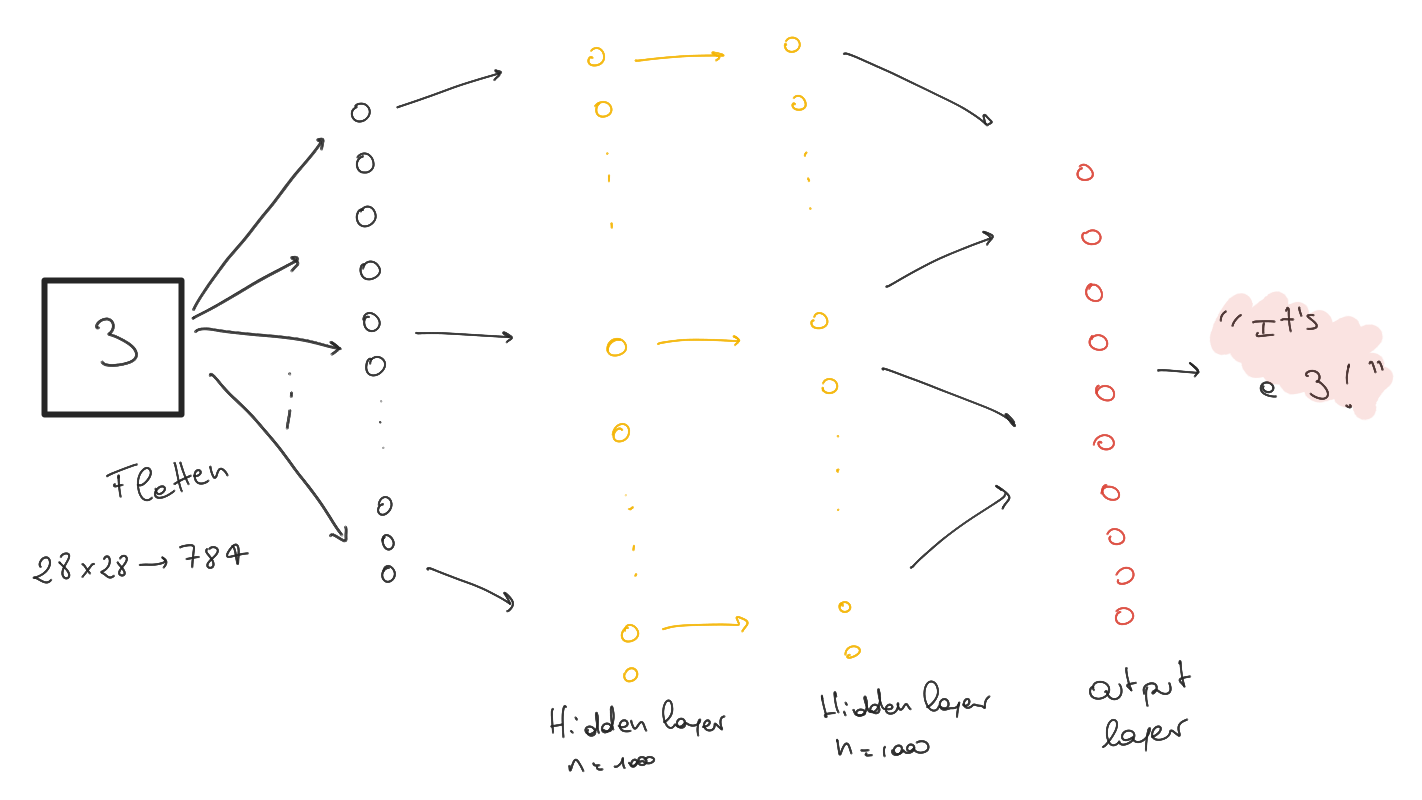 3
Flatten
28×28→784
Hidden layer
n=1000
Hidden layer
n=1000
output
layer
"It's
a 3!"